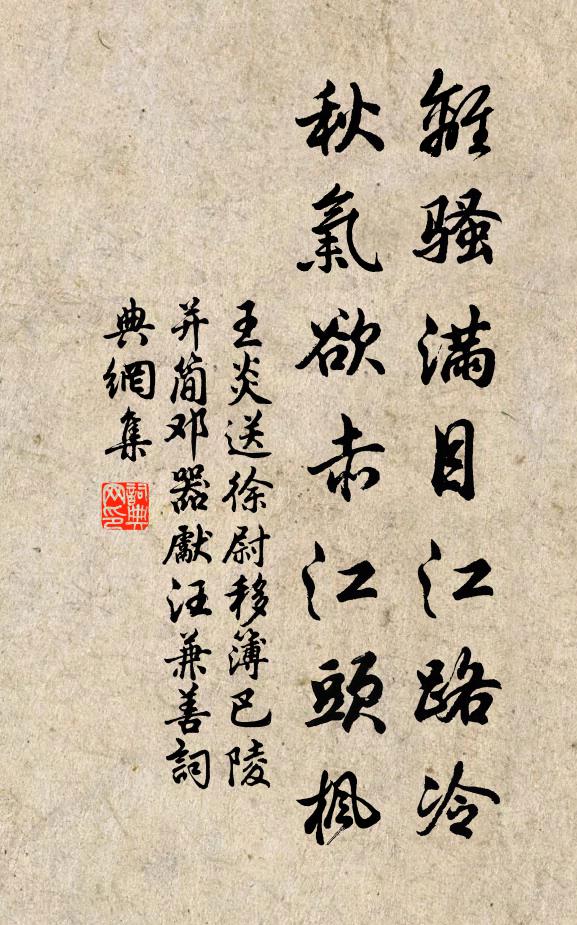 離騷滿目江路冷
秋氣欲赤江頭楓
王炎送徐尉移簿巴陵
并簡邓器獻汪兼善詞
典網集
詞典
网印